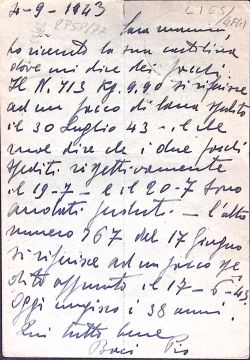 4-9-1943
LIES/4(61)
8P5P/77
Cara mamma,
ho ricevuto la sua cartolina
dove mi dice dei pacchi.
Il N. 713 Kg. 9,90 si riferisce
ad un pacco di lana spedito
il 30 Luglio 43 - il che
vuol dire che i due pacchi
spediti rispettivamente
il 19-7 - e il 20-7 sono
andati perduti. - L'altro
numero 767 del 17 Giugno
si riferisce ad un pacco spe
dito appunto il 17-6-43
Oggi compiono i 38 anni.
Qui tutto bene
Baci Pio